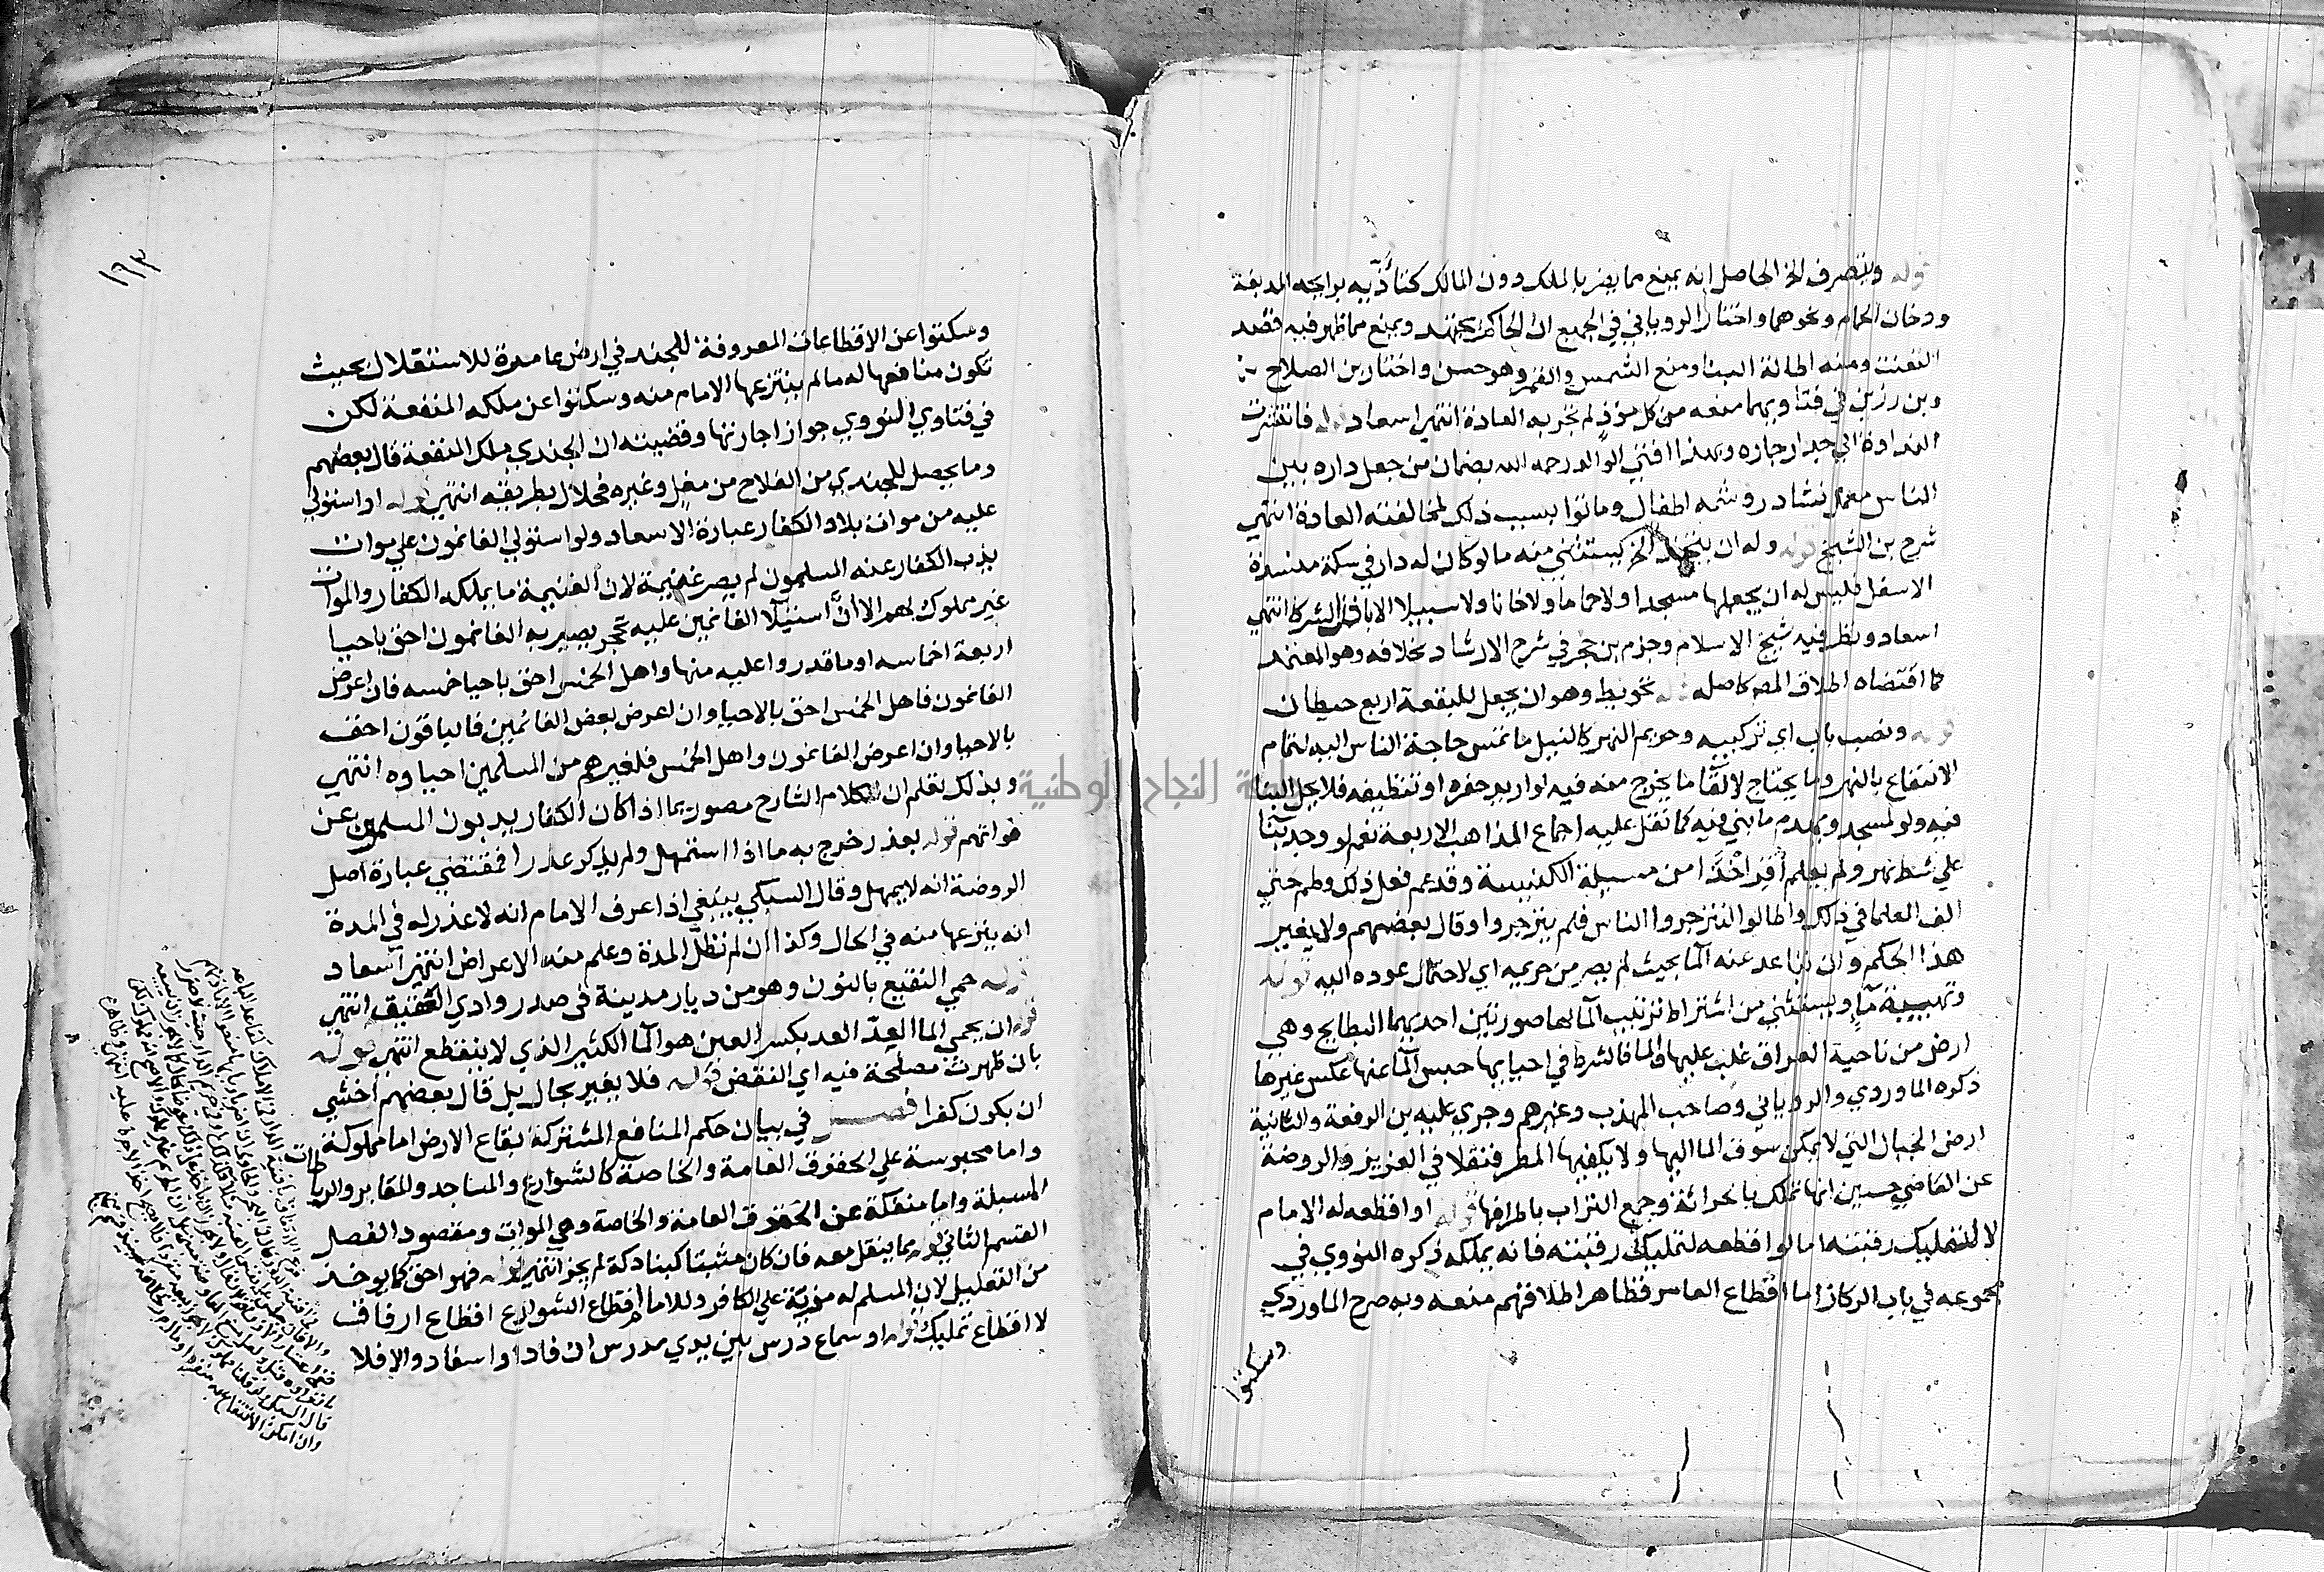 قوله ويتصرف الخ الحاصل انه يمنع مما يضر بالملك دون المالك كتأذيه برايحه المدبغة
ودخان الحمام ونحوهما واختار الروياني في الجميع ان الحاكم يجتهد ويمنع مما ظهر فيه قصد
التعنت ومنه اطالة البنا ومنع الشمس والقمر وهو حسن واختار بن الصلاح
وبن رزين في فتاويهما منعه من كل مؤذ لم تجر به العادة انتهى اسعاد قوله فانتشرت
النداوة الي جدار جاره وبهذا افتي الوالد رحمه الله بضمان من جعل داره بين
الناس معمل نشادر وشمه اطفال وماتوا بسبب ذلك لمخالفته العادة انتهي
شرح بن الشيخ قوله وله ان يتخذ الخ يستثني منه ما لو كان له دار في سكة منسدة
الاسفل فليس له ان يجعلها مسجدا ولا حماما ولا خانا ولا سبيلا الا باذن الشركا انتهي
اسعاد ونظر فيه شيخ الاسلام وجزم بن حجر في شرح الارشاد بخلافه وهو المعتمد
كما اقتضاه اطلاق المص كاصله قوله تحويط وهو ان يجعل للبقعة اربع حيطان
قوله ونصب باب اي تركيبه وحريم النهر كالنيل ما تمس حاجة الناس اليه لتمام
الانتفاع بالنهر وما يحتاج لالقا ما يخرج منه فيه لو اريد حفره او تنظيفه فلا يحل البنا
فيه ولو لمسجد ويهدم ما بني فيه كما نقل عليه اجماع المذاهب الاربعة نعم لو وجد بنا
علي شط نهر ولم يعلم أقر اخذا من مسيلة الكنيسة وقد عم فعل ذلك وطم حتي
الف العلما في ذلك واطالوا لتنزجروا الناس فلم ينزجروا وقال بعضهم ولا يغير
هذا الحكم وان تباعد عنه الما بحيث لم يصر من حريمه اي لاحتمال عوده اليه قوله
وتهيية ماء ويستثني من اشتراط ترتيب الما لها صورتين احديهما البطايح وهي
ارض من ناحية العراق غلب عليها الما فالشرط في احيايها حبس الما عنها عكس غيرها
ذكره الماوردي والروياني وصاحب المهذب وغيرهم وجري عليه بن الرفعة والثانية
ارض الجبال التي لا يمكن سوق الما اليها ولا يكفيها المطر فنقلا في العزيز والروضة
عن القاضي حسين انها تملك بالحراثة وجمع التراب باطرافها قوله او اقطعه له الامام
لا لتمليك رقبته اما لو اقطعه لتمليك رقبته فانه يملكه ذكره النووي في
مجموعه في باب الركاز اما اقطاع العامر فظاهر اطلاقهم منعه وبه صرح الماوردي
وسكتوا
١٩٣
وسكتوا عن الاقطاعات المعروفة للجند في ارض عامرة للاستغلال بحيث
تكون منافعها له ما لم ينتزعها الامام منه وسكتوا عن ملكه المنفعة لكن
في فتاوي النووي جواز اجارتها وقضيته ان الجندي يملك المنفعة قال بعضهم
وما يحصل للجندي من الفلاح من مغل وغيره فحلال بطريقه انتهي قوله او استولي
عليه من موات بلاد الكفار عبارة الاسعاد ولو استولي الغانمون علي موات
يذب الكفار عنه المسلمون لم يصر غنيمة لان الغنيمة ما يملكه الكفار والموات
غير مملوك لهم الا ان استيلا الغانمين عليه تحجر يصير به الغانمون احق باحيا
اربعة اخماسه او ما قدروا عليه منها واهل الخمس احق باحيا خمسه فان اعرض
الغانمون فاهل الخمس احق بالاحيا وان اعرض بعض الغانمين فالباقون احق
بالاحيا وان اعرض الغانمون واهل الخمس فلغيرهم من المسلمين احياوه انتهي
وبذلك تعلم ان كلام الشارح مصور بما اذا كان الكفار يذبون المسلمين عن
مواتهم قوله بعذر خرج به ما اذا استمهل ولم يذكر عذرا فمقتضي عبارة اصل
الروضة انه لا يمهل وقال السبكي ينبغي اذا عرف الامام انه لا عذر له في المدة
انه ينزعها منه في الحال وكذا ان لم تطل المدة وعلم منه الاعراض انتهي اسعاد
قوله حمي النقيع بالنون وهو من ديار مدينة في صدر وادي العقيق انتهي
قوله ان يحمي الما العد العد بكسر العين هو الما الكثير الذي لا ينقطع انتهي قوله
بان ظهرت مصلحة فيه اي النقض قوله فلا يغير بحال بل قال بعضهم اخشي
ان يكون كفرا فصل في بيان حكم المنافع المشتركة بقاع الارض اما مملوكة
واما محبوسة علي الحقوق العامة والخاصة كالشوارع والمساجد والمقابر والرباطات
المسبلة واما منفكة عن الحقوق العامة والخاصة وهي الموات ومقصود الفصل
القسم الثاني قوله بما ينقل معه فان كان مثبتا كبنا دكة لم يجز انتهي قوله فهو احق كما يوخذ
من التعليل لان المسلم له مزية علي الكافر وللامام اقطاع الشوارع اقطاع ارفاق
لا اقطاع تمليك قوله او سماع درس بين يدي مدرس ان فادا واستفاد والا فلا
جامعة النجاح الوطنية